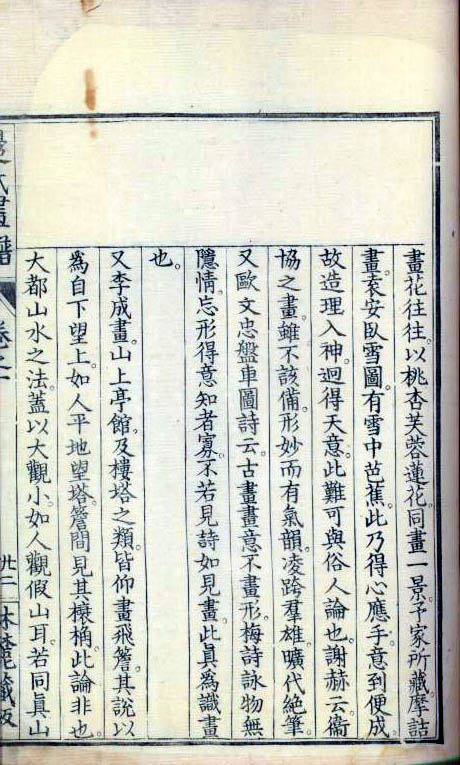 畫花往往。以桃杏芙蓉蓮花。同畫一景。予家所藏。摩詰
畫。袁安臥雪圖。有雪中芭蕉。此乃得心應手。意到便成。
故造理入神。迥得天意。此難可與俗人論也。謝赫云。衞
協之畫。雖不該備形妙。而有氣韻。凌跨羣雄。曠代絶筆。
又歐文忠盤車圖詩云。古畫畫意不畫形。梅詩詠物無
隱情。忘形得意知者寡。不若見詩如見畫。此眞爲識畫
也。
又李成畫。山上亭館。及樓塔之類。皆仰畫飛簷。其說以
爲自下望上。如人平地望塔。簷間見其榱桷。此論非也。
大都山水之法。蓋以大觀小。如人觀假山耳。若同眞山
卷之一
廿二